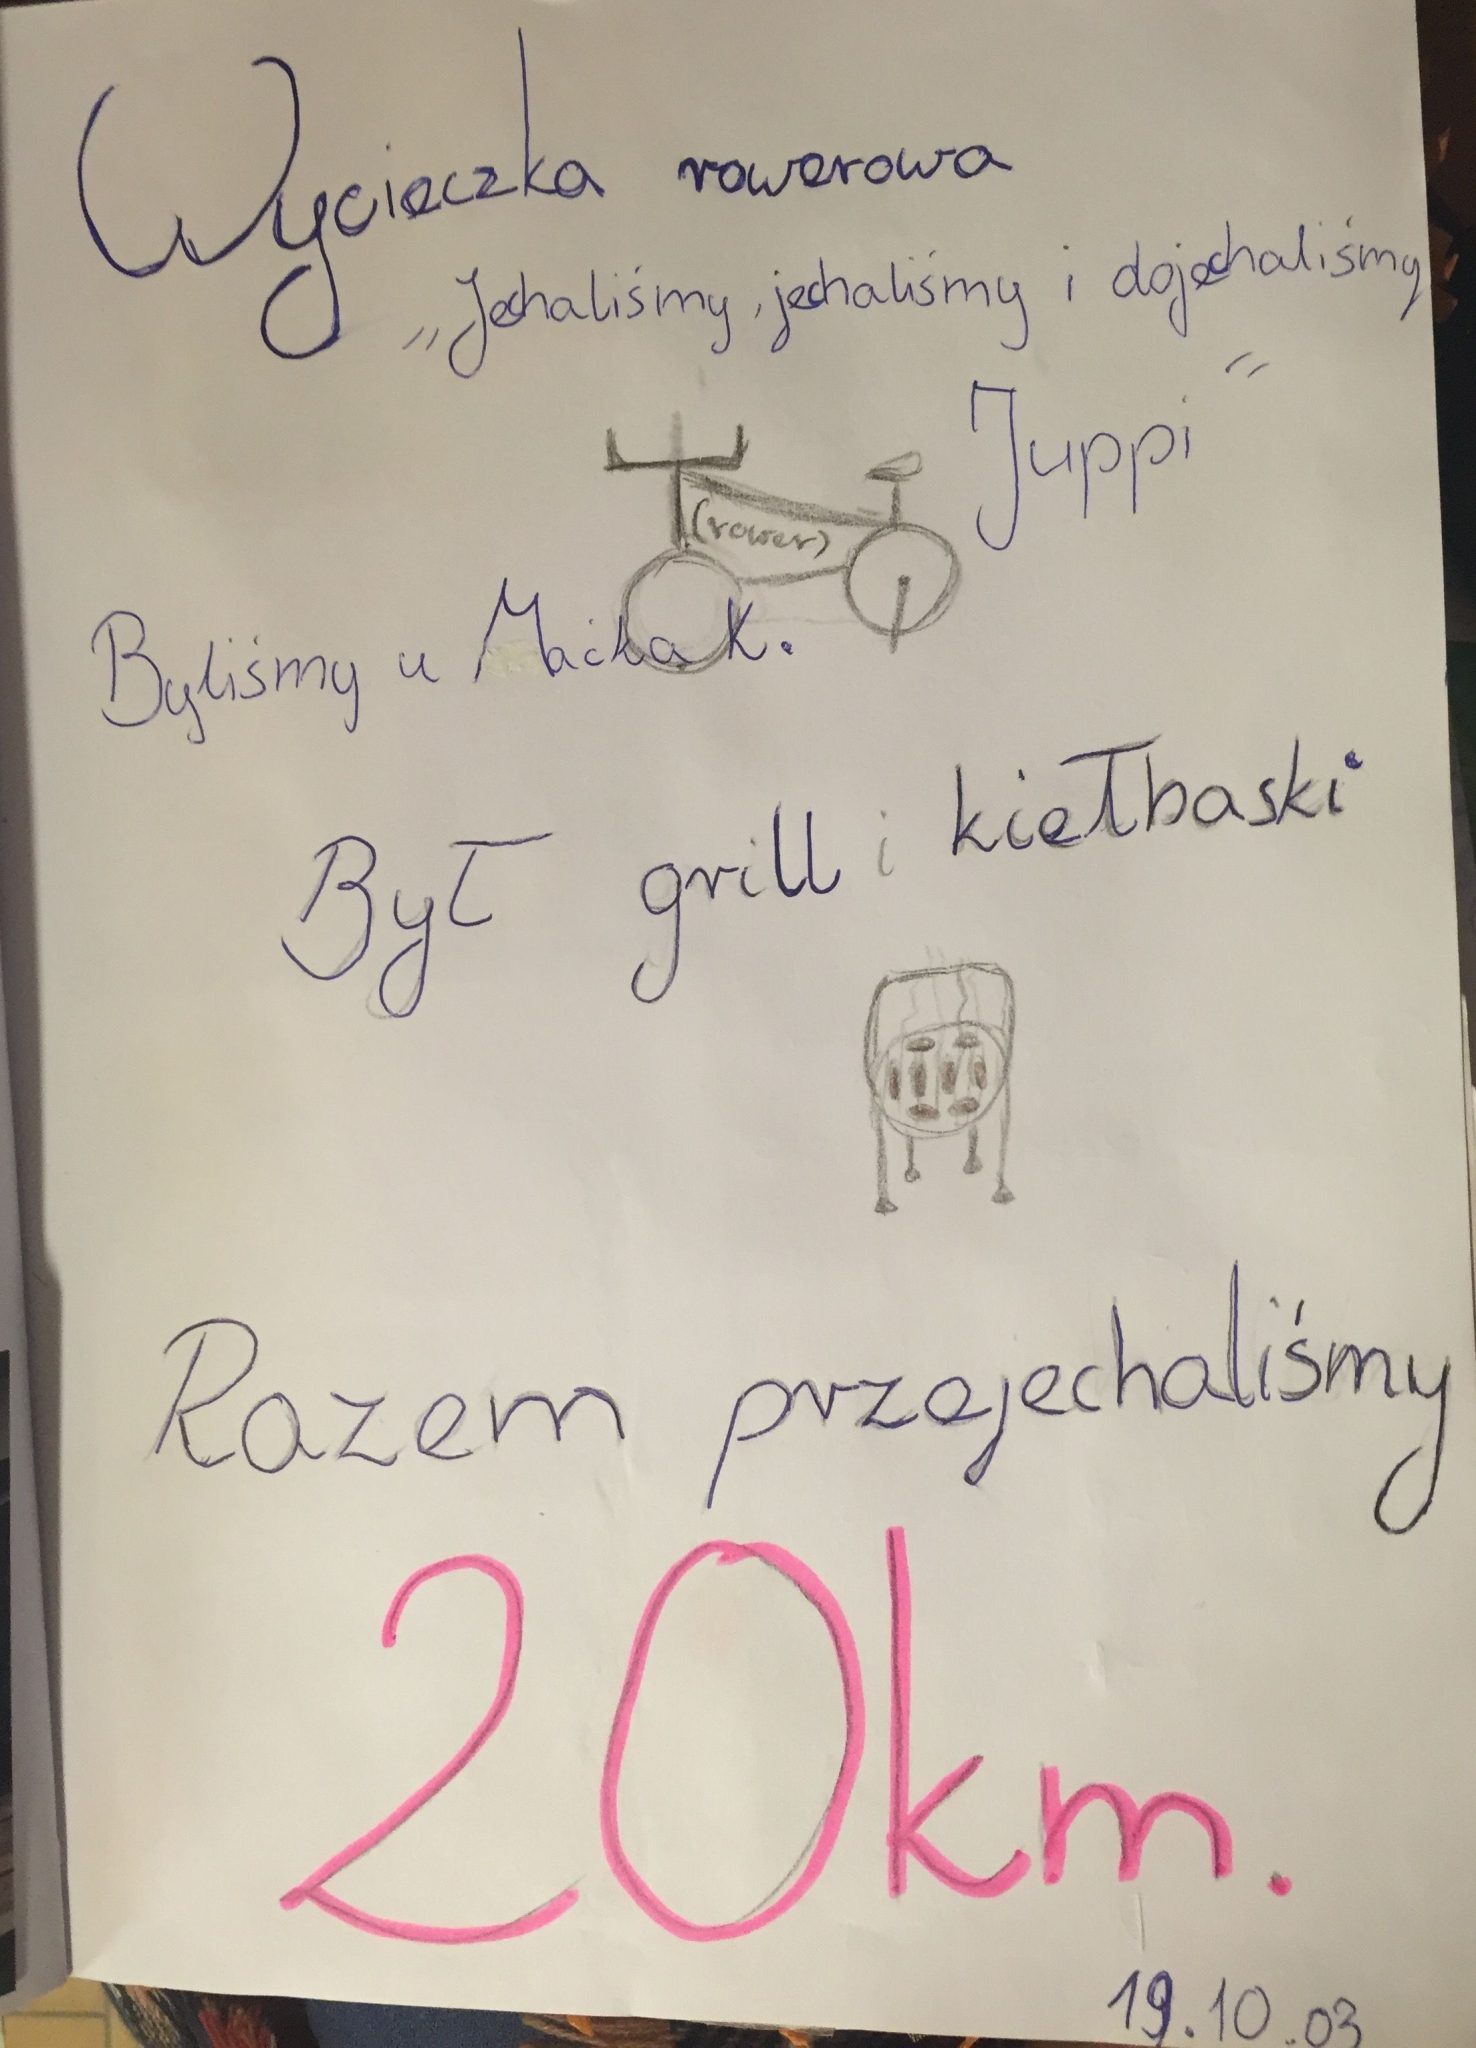 Wycieczka rowerowa
„Jechaliśmy, jechaliśmy i dojechaliśmy
Juppi"
(rower)
Byliśmy u Maćka K.
Był grill i kiełbaski
Razem przejechaliśmy
20km.
19.10.03